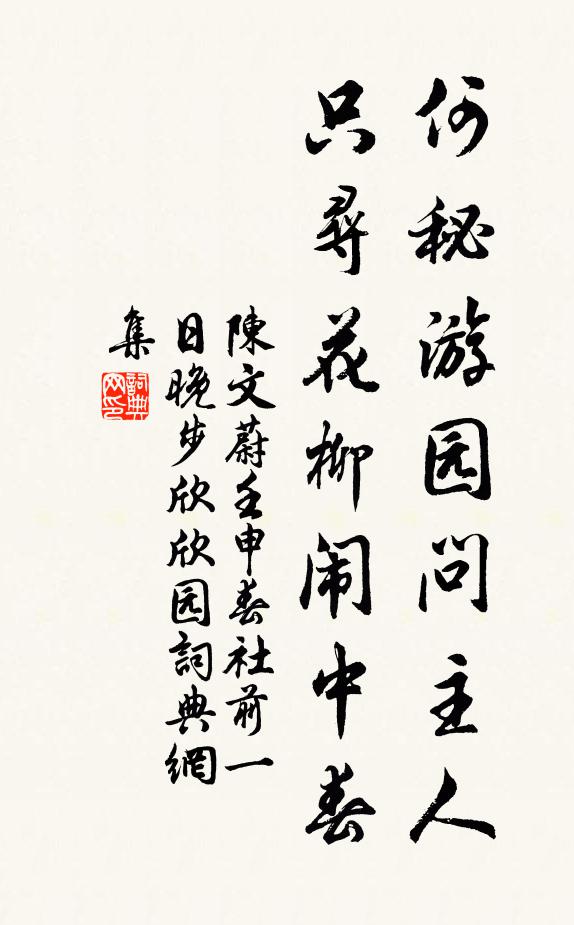 何秘游园问主人
只尋花柳闹中春
陳文蔚壬申春社前一
日晚步欣欣园詞典網
集
詞典
网印